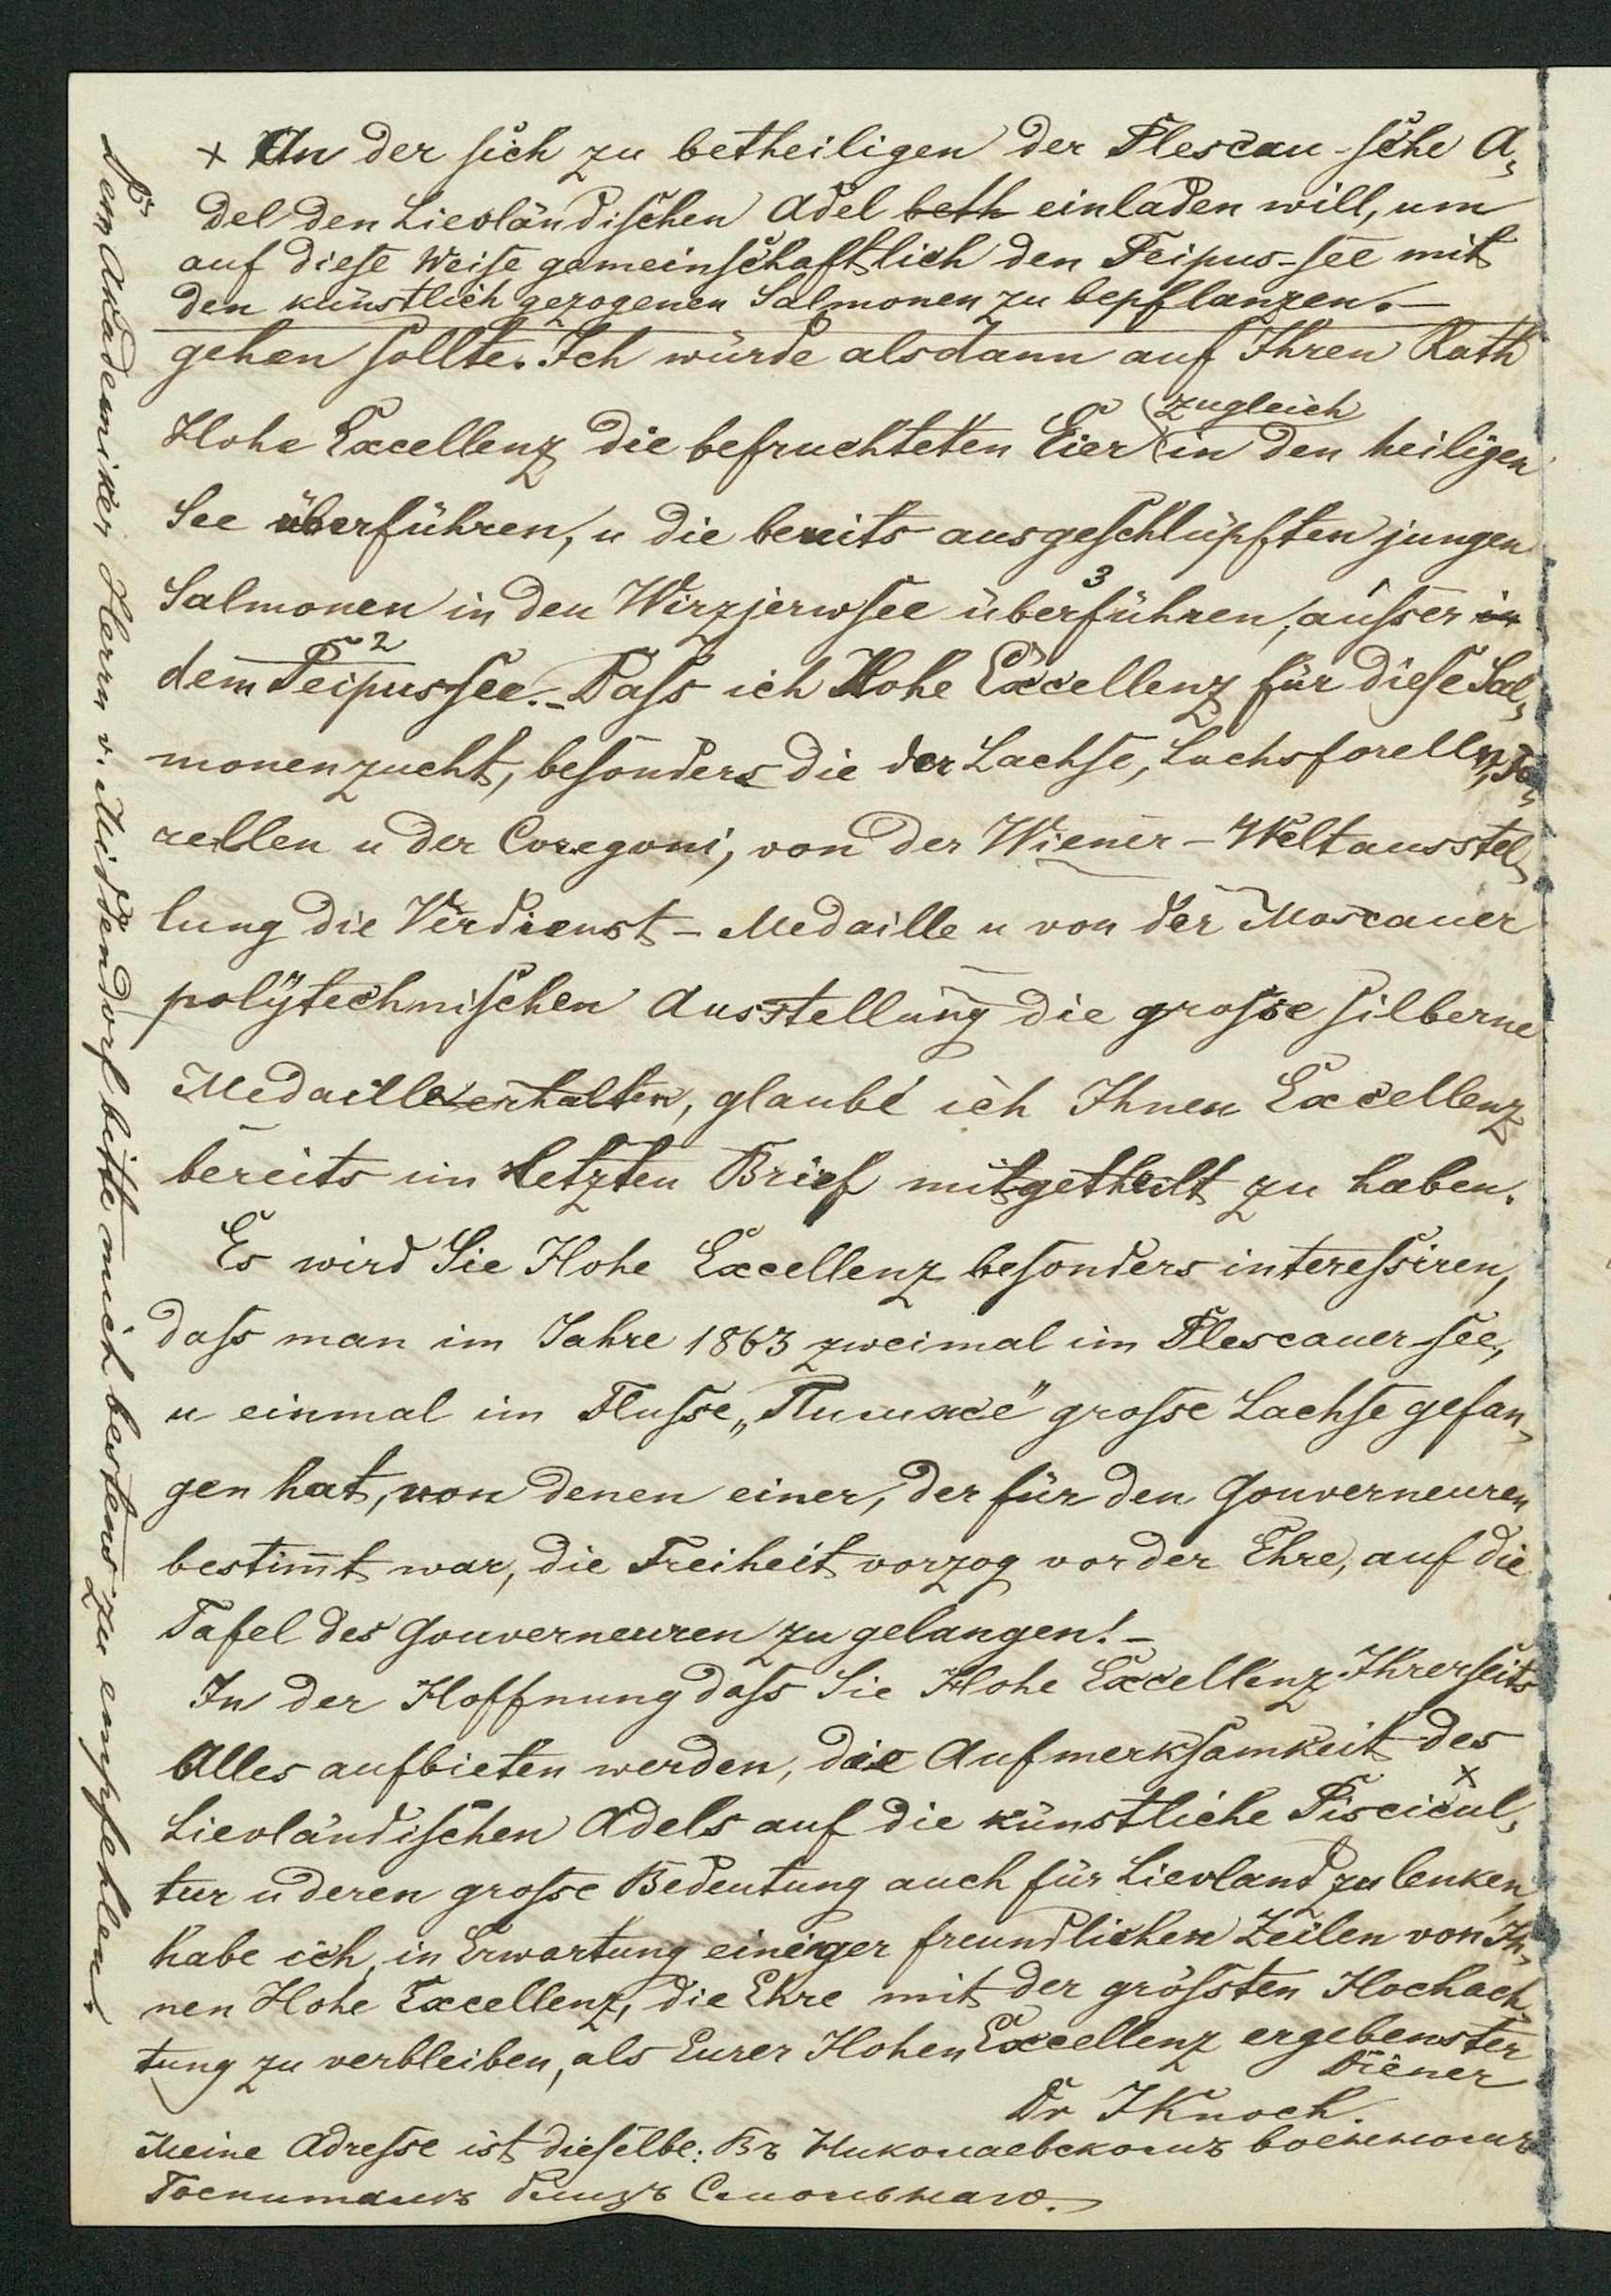 × An der sich zu betheiligen der Plescau-sche A-
del den Lievländischen Adel beth einladen will, um
auf diese Weise gemeinschaftlich den Peipus-see mit
den künstlich gezogenen Salmonen zu bepflanzen.—
gehen sollte. Ich würde alsdann auf Ihren Rath
zugleich
Hohe Excellenz die befruchteten Eier in den heiligen
See überführen, u die bereits ausgeschlüpften jungen
Salmonen in den Wirzjerwsee überführen, ausser in
3
dem Peipussee.- Dass ich Hohe Excellenz für diese Sal-
2
monenzucht, besonders die der Lachse, Lachsforellen, Fo-
rellen u der Coregoni, von der Wiener-Weltausstel-
lung die Verdienst-Medaille u von der Moscauer
polÿtechnischen Ausstellung die grosse silberne
Medaille erhalten, glaube ich Ihnen Excellenz
bereits im letzten Brief mitgetheilt zu haben.
Es wird Sie Hohe Excellenz besonders interessiren,
dass man im Jahre 1863 zweimal im Plescauer-see,
u einmal im Flusse „ grosse Lachse gefan-
gen hat, von denen einer, der für den Gouverneuren
bestim̄t war, die Freiheit vorzog vor der Ehre, auf die
Tafel des Gouverneuren zu gelangen! –
In der Hoffnung dass Sie Hohe Excellenz Ihrerseits
Alles aufbieten werden, die Aufmerksamkeit des
×
Lievländischen Adels auf die künstliche Piscicul-
tur u deren grosse Bedeutung auch für Lievland zu lenken,
habe ich, in Erwartung einiger freundlichen Zeilen von Ih-
nen Hohe Excellenz, die Ehre mit der grössten Hochach-
tung zu verbleiben, als Eurer Hohen Excellenz ergebenster
Diener
Dr JKnoch.
Meine Adresse ist dieselbe: Въ Николаевскомъ военномъ
Госпиталь близъ Смольнаго.
Dem Akademiker Herrn v. Middendorf bitte mich bestens zu empfehlen.